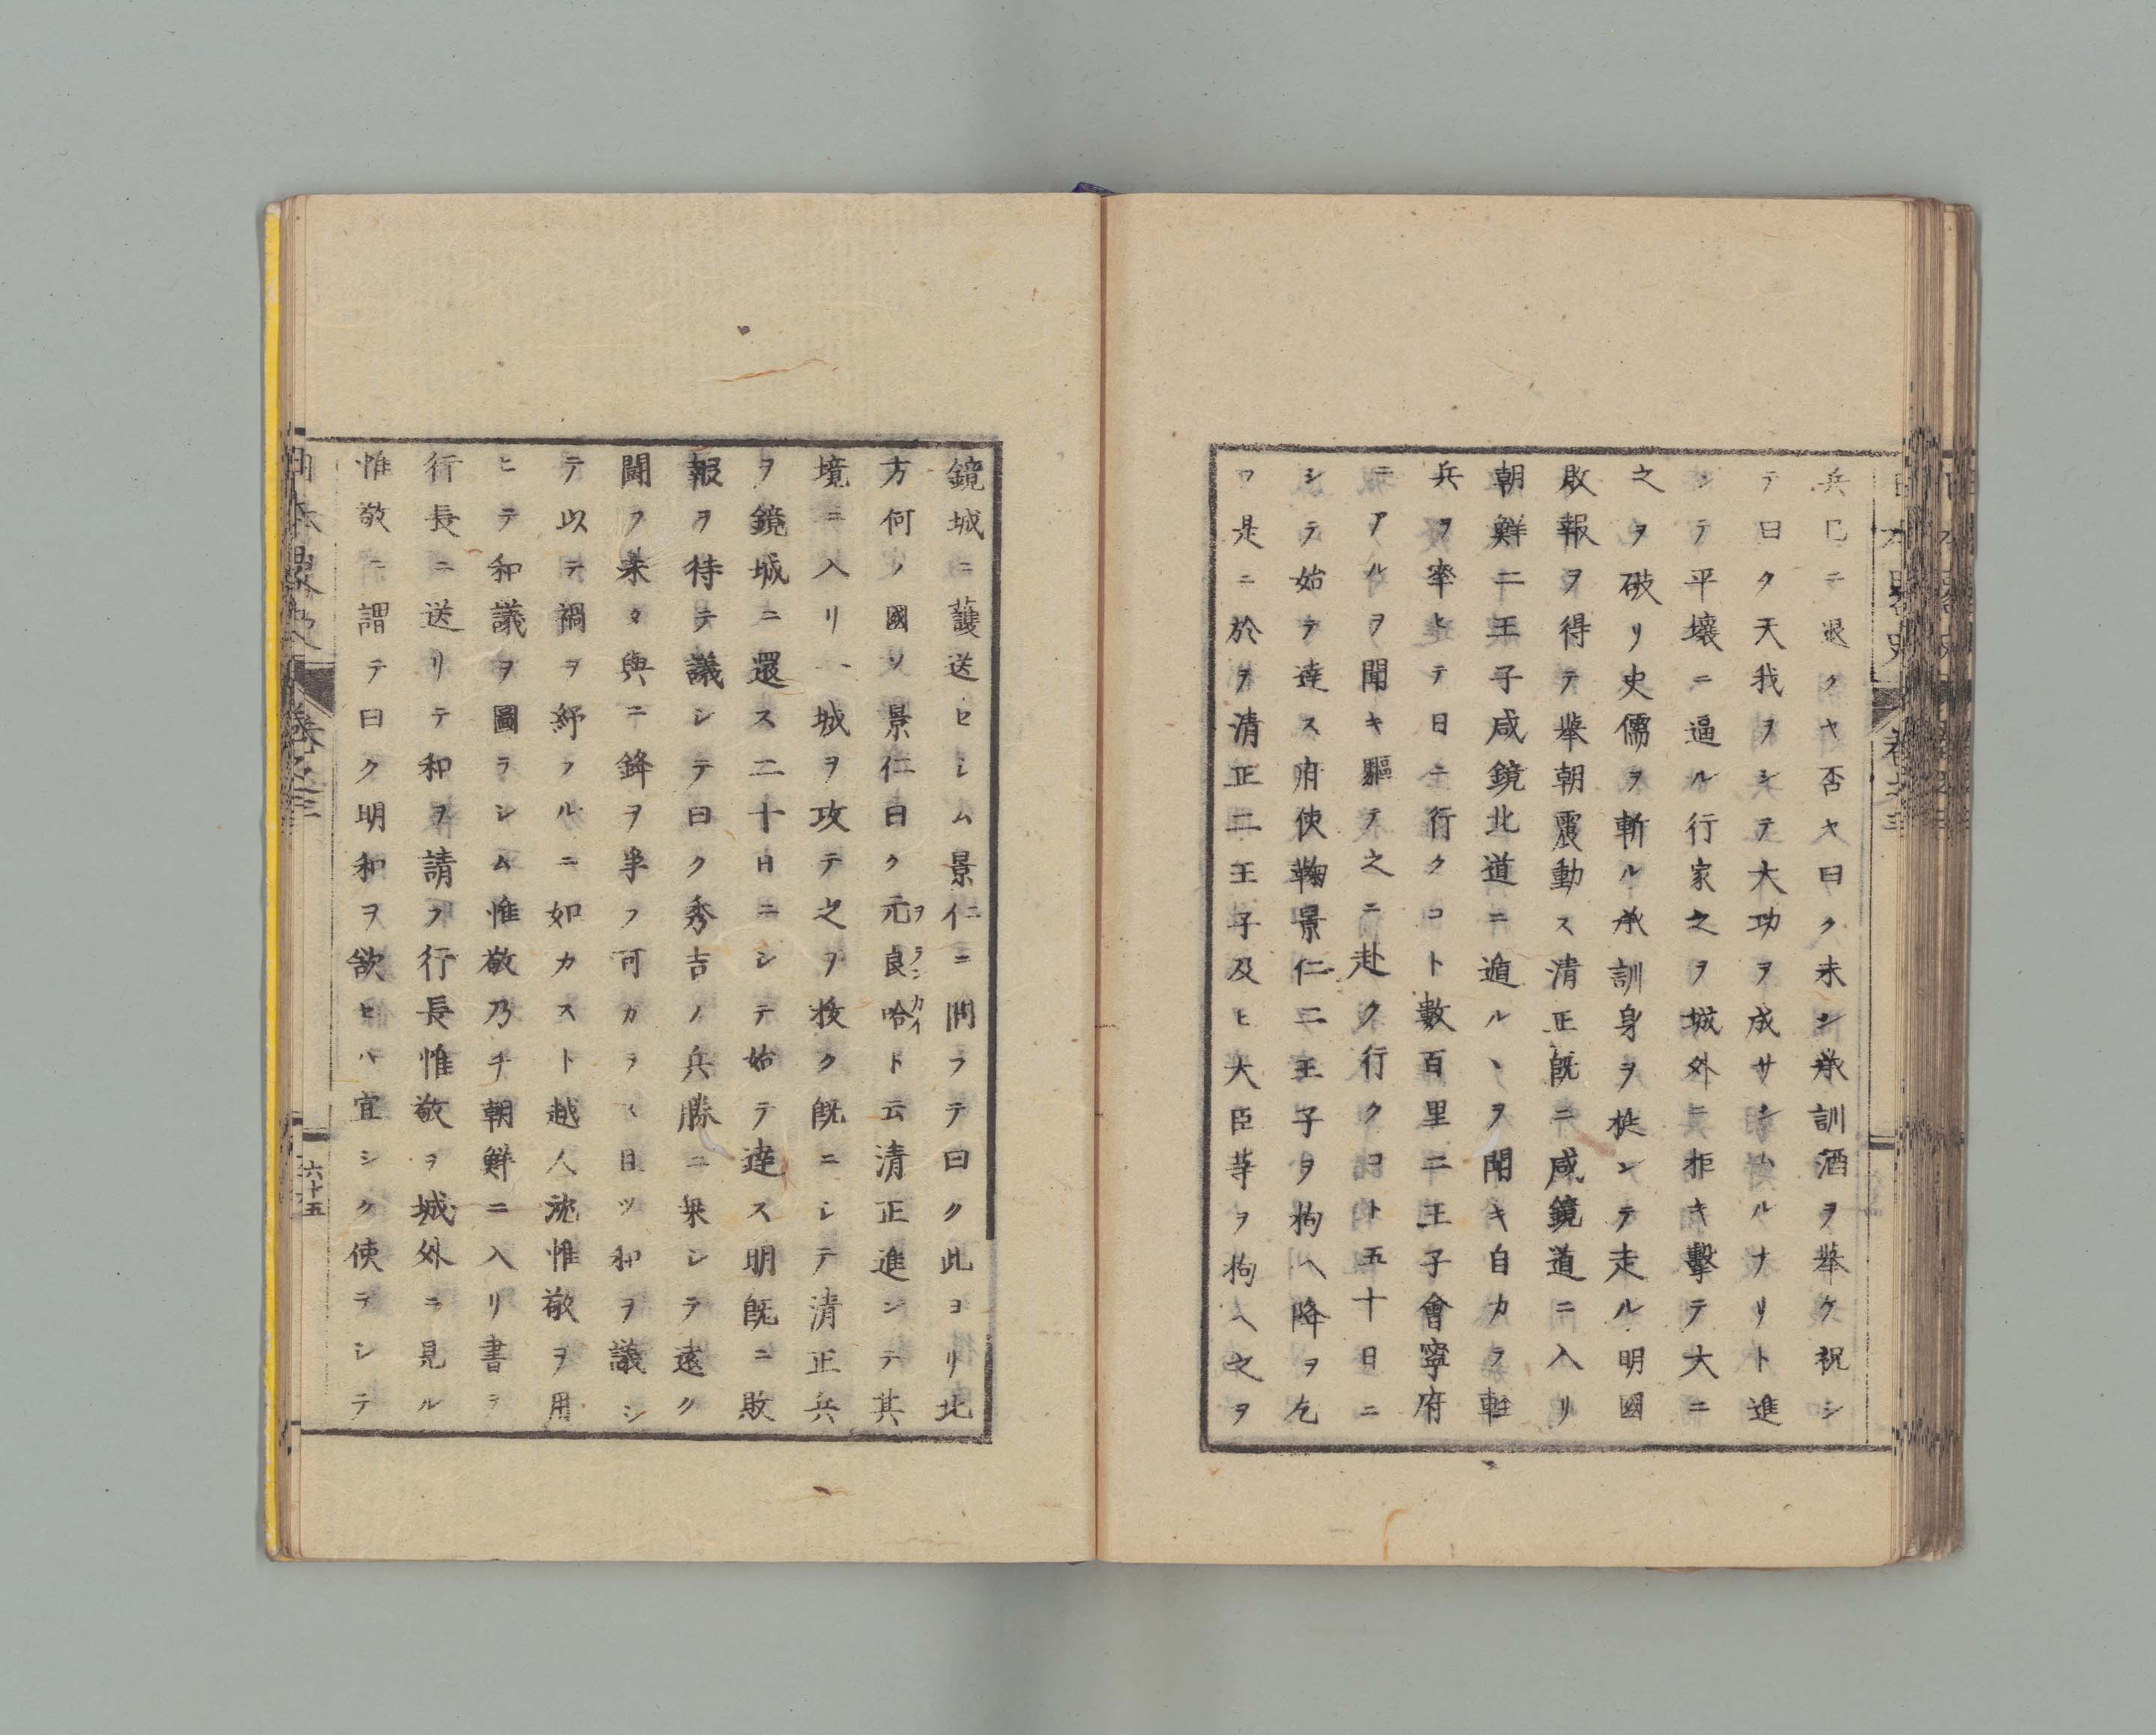 兵已ニ退クヤ否ヤ曰ク未シ承訓酒ヲ擧ク祝シ
テ曰ク天我ヲシテ大功ヲ成サシムルナリト進
ンテ平壤ニ逼ル行家之ヲ城外ニ拒キ擊テ大ニ
之ヲ破リ史儒ヲ斬ル承訓身ヲ挺ンテ走ル明國
敗報ヲ得テ擧朝震動ス清正既ニ咸鏡道ニ入リ
朝鮮二王子咸鏡北道ニ遁ルヽヲ聞キ自カラ輕
兵ヲ率ヒテ日ニ行クコト數百里二王子會寧府
ニアルヲ聞キ驅テ之ニ赴ク行クコト五十日ニ
シテ始テ達ス府使鞠景仁二王子ヲ拘ヘ降ヲ乞
フ是ニ於ヲ清正二王子及ヒ大臣等ヲ拘ヘ之ヲ
日本畧史 卷之三
鏡城ニ護送セシム景仁ニ問フテ曰ク此ヨリ北
方何ノ國ソ景仁曰ク元良哈ト云清正進ンテ其
ヲランカイ
境ニ入リ一城ヲ攻テ之ヲ拔ク既ニシテ清正兵
ヲ鏡城ニ還ス二十日ニシテ始テ達ス明既ニ敗
報ヲ待テ議シテ曰ク秀吉ノ兵勝ニ乗シテ遠ク
鬪フ來タ與ニ鋒ヲ爭フ可カラス且ツ和ヲ議シ
テ以テ禍ヲ紓フルニ如カスト越人沈惟敬ヲ用
ヒテ和議ヲ圖ラシム惟敬乃チ朝鮮ニ入リ書ヲ
行長ニ送リテ和ヲ請フ行長惟敬ヲ城外ニ見ル
惟敬ニ謂テ曰ク明和ヲ欲セハ宜シク使テシテ
日本畧史 卷之三 六十五